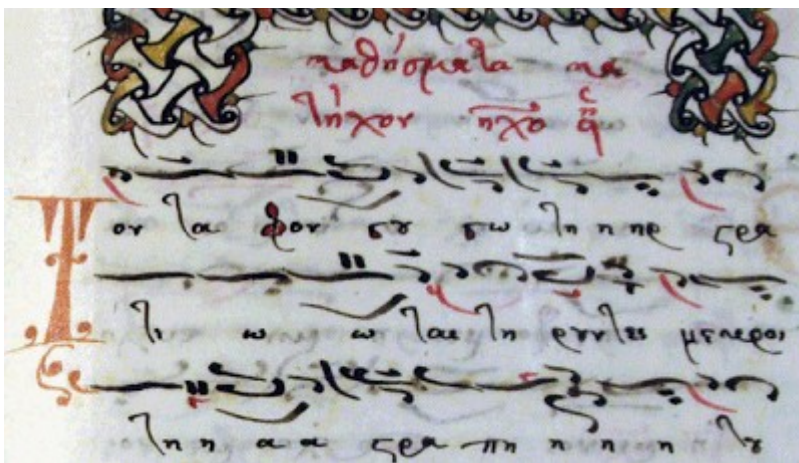 καθήσματα κα
τήχον ἦχο α
Τον τα φον σου σω τη η ηρ στρα
τι ω ω ται τη ρουντες νεκροι
τη η α α στρα πη η η η του